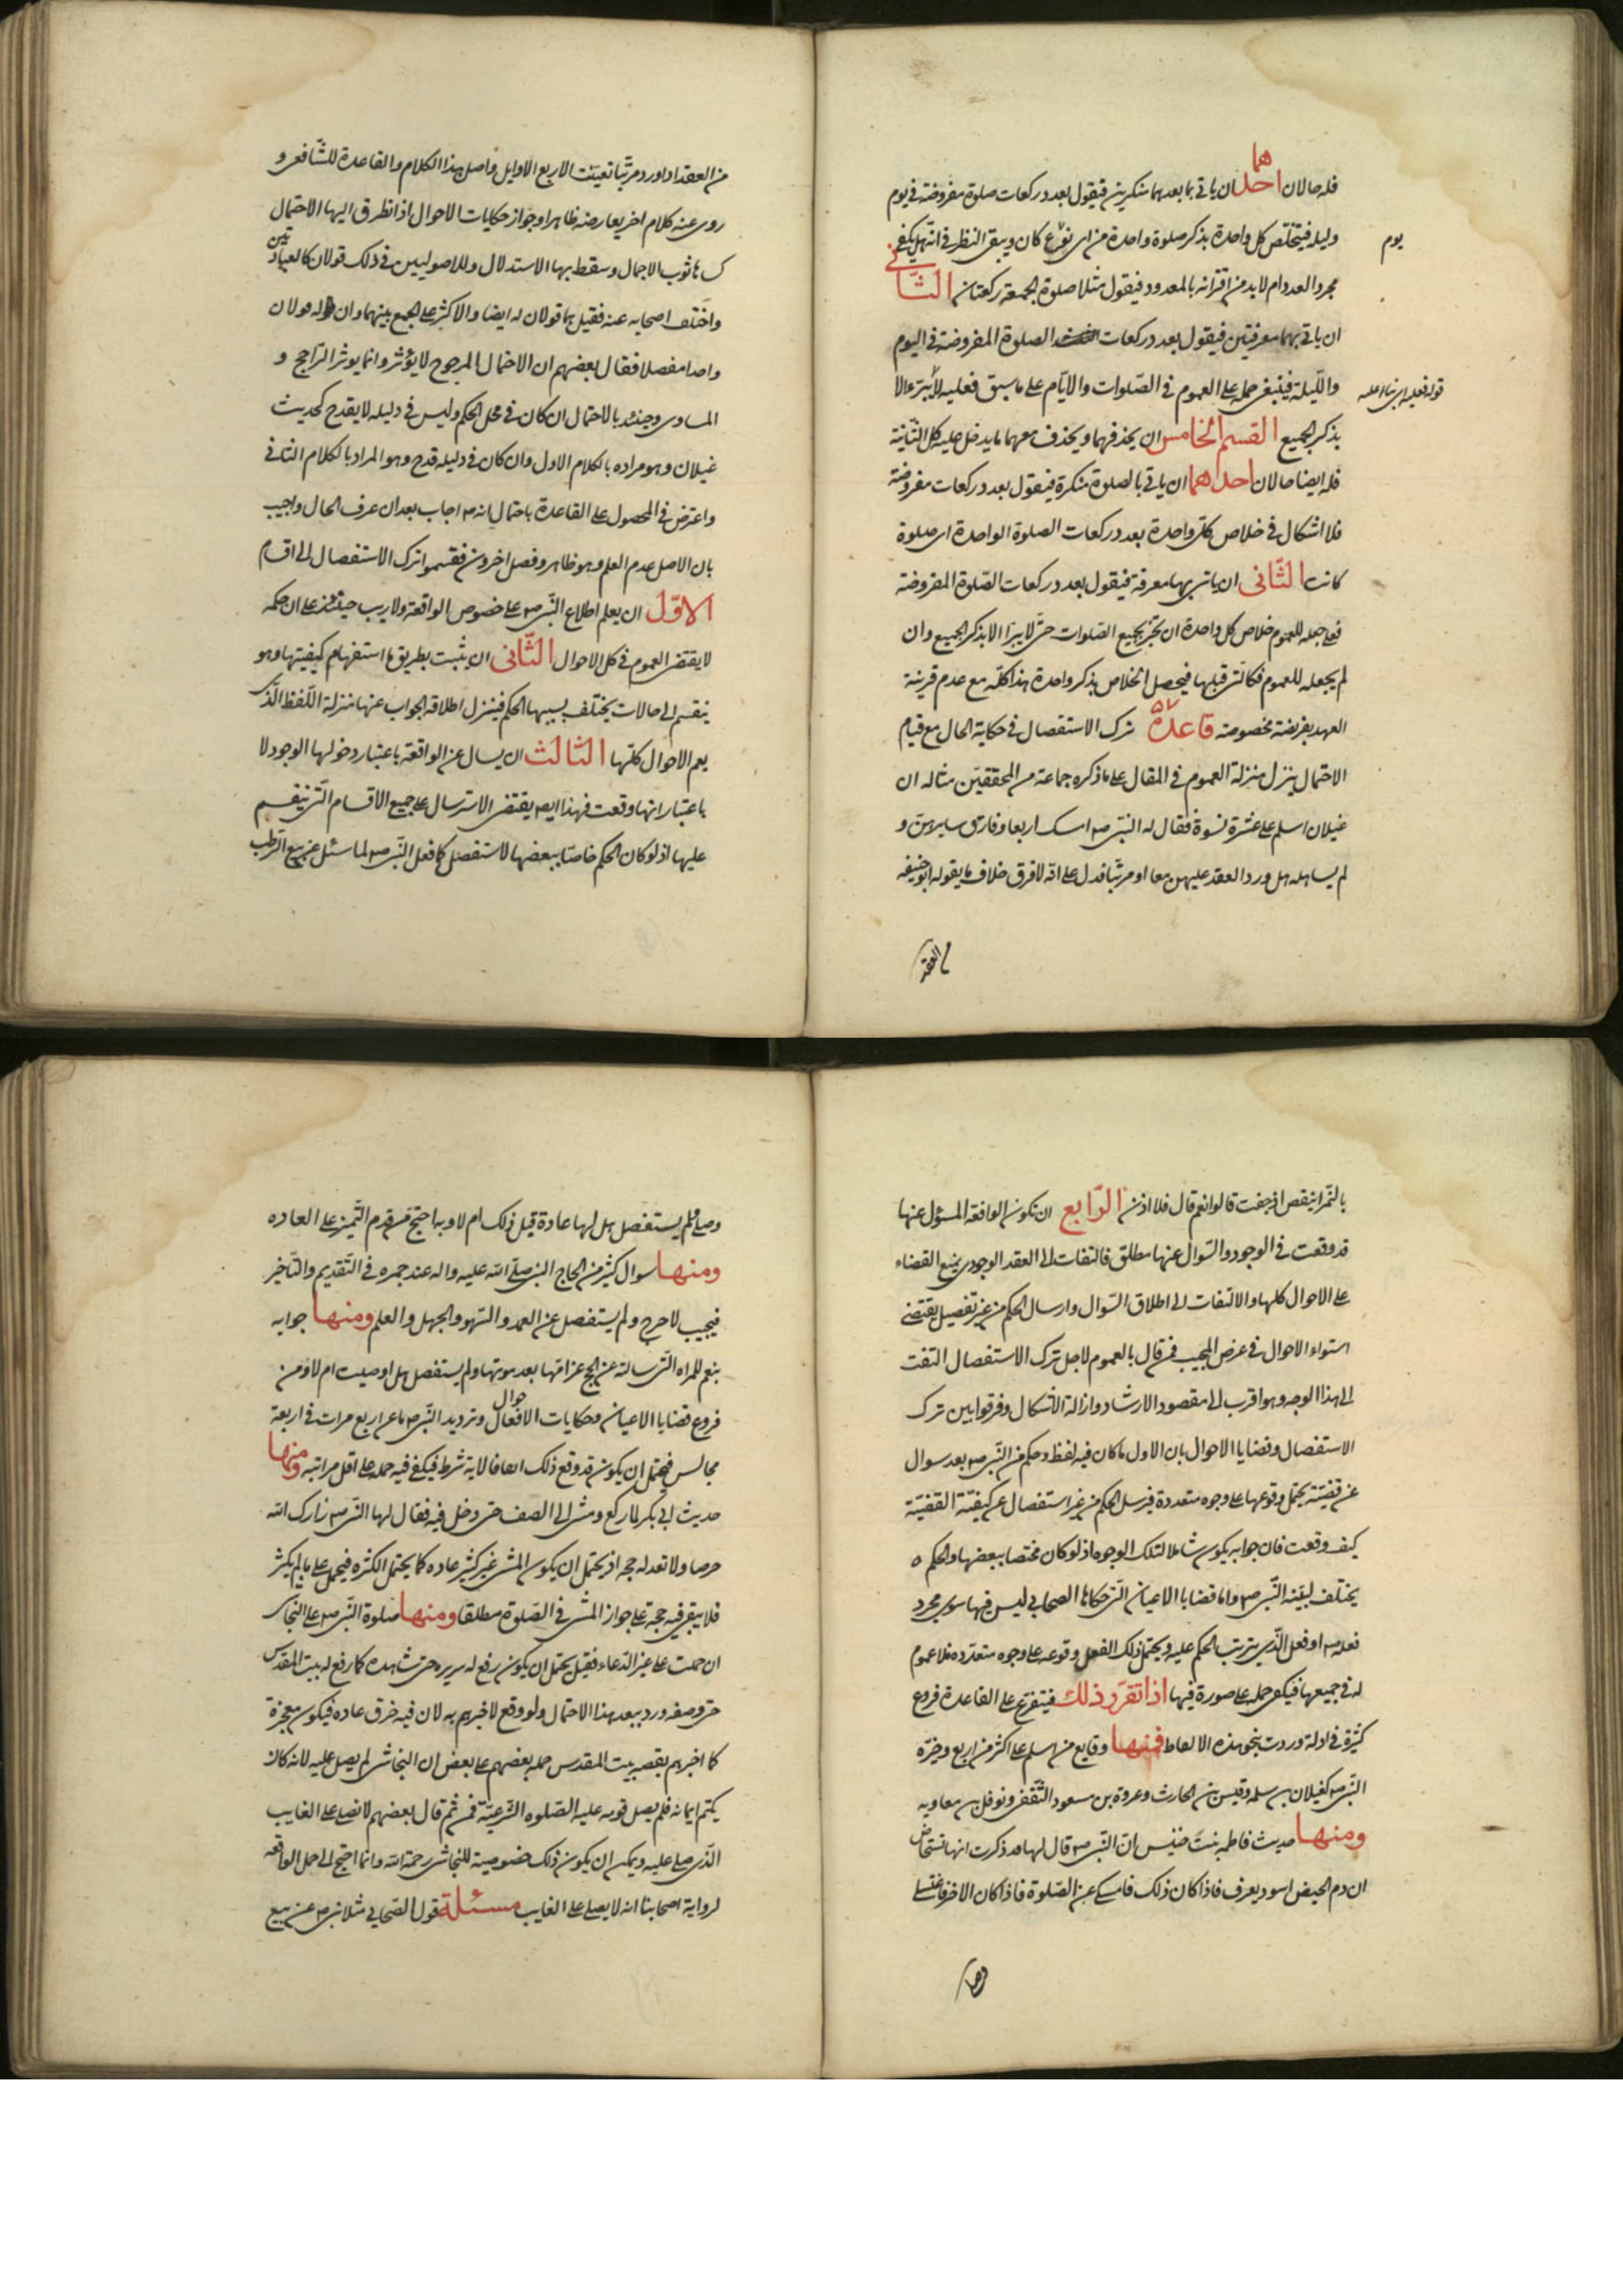 فله حالان احدهما ان ياتى بما بعدهما منكرين فيقول بعدد ركعات صلوة مفروضة فى يوم
وليله فيتخلص كل واحدة بذكر صلوة واحدة من اى نوع كان ويبقى النظر فى انه هل يكفى
يوم
مجرد العدد ام لابد من اقترانه بالمعدود فيقول مثلا صلوة الجمعة ركعتان الثانى
ان ياتى بهما معرفتين فيقول بعدد ركعات الصلوة المفروضة فى اليوم
والليلة فينبغى حمله على العموم فى الصلوات والايام على ما سبق فعليه لا يبرء الا
بذكر الجميع القسم الخامس ان يحذفهما ويحذف معهما ما يدخل عليه كل الثانية
فله ايضا حالان احداهما ان ياتى بالصلوة منكرة فيقول بعدد ركعات مفروضة
فلا اشكال فى خلاص كل واحدة بعدد ركعات الصلوة الواحدة اى صلوة
كانت الثانى ان ياتى بها معرفة فيقول بعدد ركعات الصلوة المفروضة
فعلى جعله للعموم خلاص كل واحدة ان تخبر بجميع الصلوات حتى لا يبرا الا بذكر الجميع وان
لم يجعله للعموم فكالتى قبلها فيحصل الخلاص بذكر واحدة هذا كله مع عدم قرينة
العهد بفريضة مخصوصة قاعدة ترك الاستفصال فى حكاية الحال مع قيام
الاحتمال ينزل منزلة العموم فى المقال على ما ذكره جماعة من المحققين مثاله ان
غيلان اسلم على عشرة نسوة فقال له النبى ص امسك اربعا وفارق سايرهن و
لم يساله هل ورد العقد عليهن معا او مرتبا فدل على انه لا فرق خلاف ما يقوله ابو حنيفه
من العقد
من العقد او اورد مرتبا تعينت الاربع الاوايل واصل هذا الكلام والقاعدة للشافعى و
روى عنه كلام اخر يعارضه ظاهرا وجواز حكايات الاحوال اذا تطرق اليها الاحتمال
كساها ثوب الاجمال وسقط بها الاستدلال وللاصوليين فى ذلك قولان كالعبارتين
واختلف اصحابه عنه فقيل هما قولان له ايضا والاكثر على الجمع بينهما وان له قولا
واحدا مفصلا فقال بعضهم ان الاحتمال المرجوح لا يؤثر وانما يوثر الراجح و
المساوى وحينئذ بالاحتمال ان كان فى محل الحكم وليس فى دليله لا يقدح كحديث
غيلان وهو مراده بالكلام الاول وان كان فى دليله قدح وهو المراد بالكلام الثانى
واعترض فى المحصول على القاعدة باحتمال انه ص اجاب بعد ان عرف الحال واجيب
بان الاصل عدم العلم وهو ظاهر وفصل اخرون فقسموا ترك الاستفصال الى اقسام
الاول ان يعلم اطلاع النبى ص على خصوص الواقعة ولا ريب حينئذ على ان حكمه
لا يقتضى العموم فى كل الاحوال الثانى ان يثبت بطريق ما استفهام كيفيتها وهو
ينقسم الى حالات يختلف بسببها الحكم فينزل اطلاقه الجواب عنها منزلة اللفظ الذى
يعم الاحوال كلها الثالث ان يسال عن الواقعة باعتبار دخولها الوجود لا
باعتبار انها وقعت فهذا ايضا يقتضى الاسترسال على جميع الاقسام التى ينقسم
عليها اذ لو كان الحكم خاصا ببعضها لاستفصل كما فعل النبى ص لما سئل عن بيع الرطب
بالتمر اينقص اذا جفت قالوا نعم قال فلا اذن الرابع ان تكون الواقعه المسؤل عنها
قد وقعت فى الوجود والسوال عنها مطلق فالتفات الى العقد الوجودى يمنع القضاء
على الاحوال كلها والالتفات الى اطلاق السوال وارسال الحكم من غير تفصيل يقتضى
استواء الاحوال فى غرض المجيب فمن قال بالعموم لاجل ترك الاستفصال التفت
الى هذا الوجه وهو اقرب الى مقصود الارشاد وازالة الاشكال وفرقوا بين ترك
الاستفصال وقضايا الاحوال بان الاول ما كان فيه لفظ وحكم من النبى ص بعد سوال
عن قضية يحتمل وقوعها على وجوه متعددة فيرسل الحكم من غير استفصال عن كيفية القضية
كيف وقعت فان جوابه يكون شاملا لتلك الوجوه اذ لو كان مختصا ببعضها والحكم
يختلف لبينه النبى ص واما قضايا الاعيان التى حكاها الصحابى ليس فيها سوى مجرد
فعله ص او فعل الذى يترتب الحكم عليه ويحتمل ذلك الفعل وقوعه على وجوه متعدده فلا عموم
له فى جميعها فيكفى حمله على صورة فيها اذا تقرر ذلك فيتفرع على القاعدة فروع
كثيرة فى ادلة وردت بنحو هذه الالفاظ فمنها وقايع من اسلم على اكثر من اربع وخيره
النبى ص كغيلان بن سلمه وقيس بن الحارث وعروة بن مسعود الثقفى ونوفل بن معاويه
ومنها حديث فاطمه بنت حبيش ان النبى ص قال لها وقد ذكرت انها تستحاض
ان دم الحيض اسود يعرف فاذا كان ذلك فامسكى عن الصلوة فاذا كان الاخر فاغتسلى
وصلى
وصلى فلم يستفصل هل لها عادة قبل ذلك ام لا وبه احتج من قدم التميز على العاده
ومنها سوال كثير من الحاج النبى صلى الله عليه واله عند جمره فى التقديم والتاخير
فيجيب لا حرج ولم يستفصل عن العمد والسهو والجهل والعلم ومنها جوابه
بنعم للمراه التى سالته عن الحج عن امها بعد موتها ولم يستفصل هل اوصيت ام لا ومن
فروع قضايا الاعيان وحكايات الافعال وترديد النبى ص ماعز اربع مرات فى اربعة
مجالس فيحتمل ان يكون قد وقع ذلك اتفاقا لا انه شرط فيكفى فيه حمله على اقل مراتبه ومنها
حديث ابى بكر لما ركع ومشى الى الصف حتى دخل فيه فقال لها النبى ص زادك الله
حرصا ولا تعد له حجه اذ يحتمل ان يكون المشى غير كثير عاده كما يحتمل الكثره فيحمل على ما لم يكثر
فلا يبقى فيه حجة على جواز المشى فى الصلوة مطلقا ومنها صلوة النبى ص على النجاشى
ان حملت على غير الدعاء فقيل يحتمل ان يكون رفع له سريره حتى شاهده كما رفع له بيت المقدس
حتى وصفه ورد ببعد هذا الاحتمال ولو وقع لاخبرهم به لان فيه خرق عاده فيكون معجزة
كما اخبرهم بقصه بيت المقدس حمله بعضهم على بعض ان النجاشى لم يصل عليه لانه كان
يكتم ايمانه فلم يصل قومه عليه الصلوه الشرعية فمن ثم قال بعضهم لا نصلى على الغايب
الذى صلى عليه ويمكن ان يكون ذلك خصوصية للنجاشى رحمة الله وانما احتج الى حمل الواقعه
لرواية اصحابنا انه لا يصلى على الغايب مسئلة قول الصحابى مثلا نهى ص عن بيع